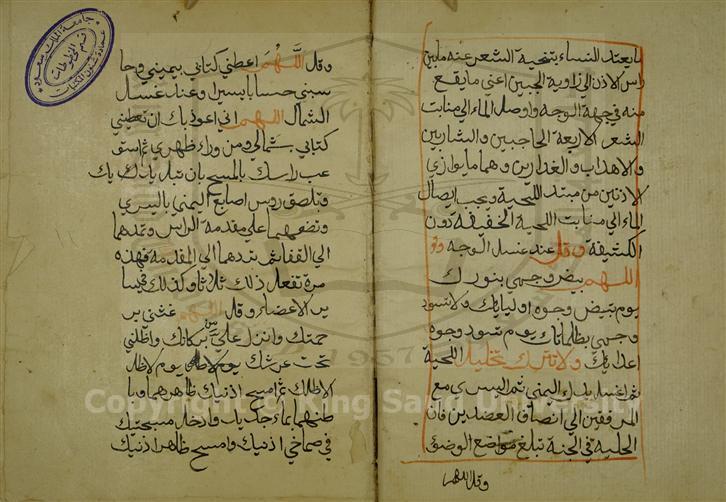 ما يعتد النساء بتنحية الشعر عنه ما بين
راس الاذن الي زاوية الجبين اعني ما يقع
منه في جبهة الوجه واوصل الماء الي منابت
الشعر الاربعة الحاجبين والشاربين
والاهداب والعذارين وهما ما يوازي
الاذنين من مبتد اللحية ويجب ايصال
الماء الي منابت اللحية الخفيفة دون
الكثيفة وقل عند غسل الوجه
اللهم بيض وجهي بنورك
يوم تبيض وجوه اوليائك ولا تسود
وجهي بظلماتك يوم تسود وجوه
اعدائك ولا تترك تخليل اللحية
ثم اغسل يدك اليمني ثم اليسري مع
المرفقين الي انصاف العضدين فان
الحلية في الجنة تبلغ مواضع الوضو
وقل اللهم
وقل اللهم اعطني كتابي بيميني وحا
سبني حسابا يسيرا وعند غسل
الشمال اللهم اني اعوذ بك ان تعطيني
كتابي بشمالي ومن وراء ظهري ثم استو
عب راسك بالمسح بان تبل يديك
وتلصق روس اصابع اليمني باليسري
وتضعهما علي مقدمة الراس وتمدهما
الي القفا ثم تردهما الي المقدمة فهذه
مرة تفعل ذلك ثلاثا وكذلك في سا
ير الاعضاء وقل اللهم غشني بر
حمتك وانزل علي من بركاتك واظلني
تحت عرشك يوم لا ظل
الا ظلك ثم امسح اذنيك ظاهرهما وبا
طنهما بماء جديد وادخل مسبحتيك
في صماخي اذنيك وامسح ظاهر اذنيك
جامعة الملك سعود
قسم المخطوطات
عمادة شئون المكتبات
1957
Copyright © King Saud University